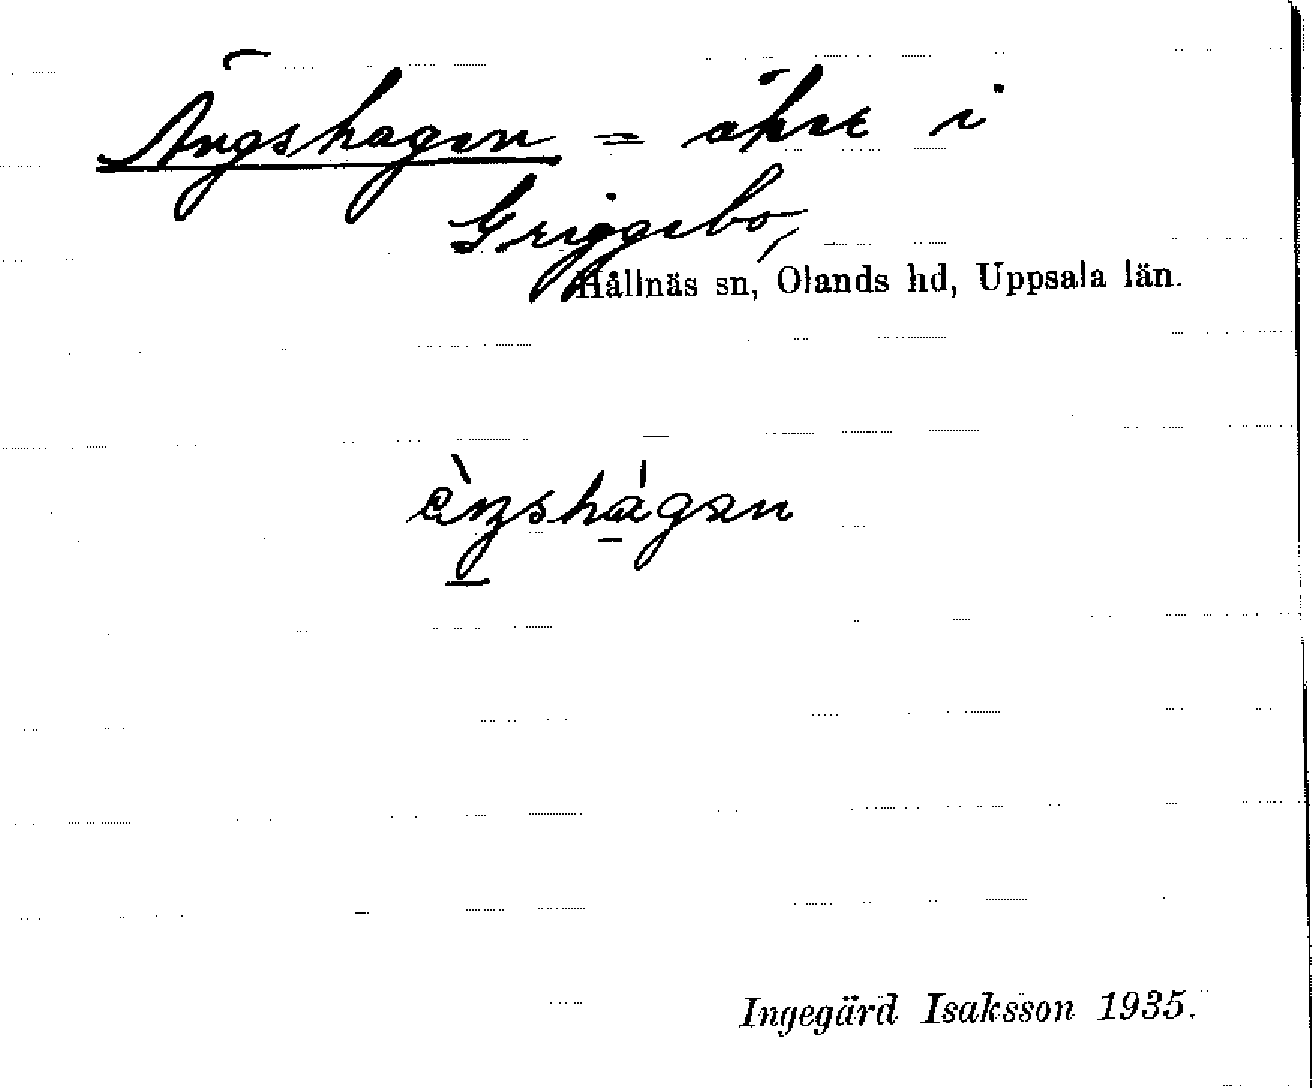 Ängshagen = åker i
Griggebo,
Hållnäs sn, Olands hd, Uppsala län.
Ingegärd Isaksson 1935.